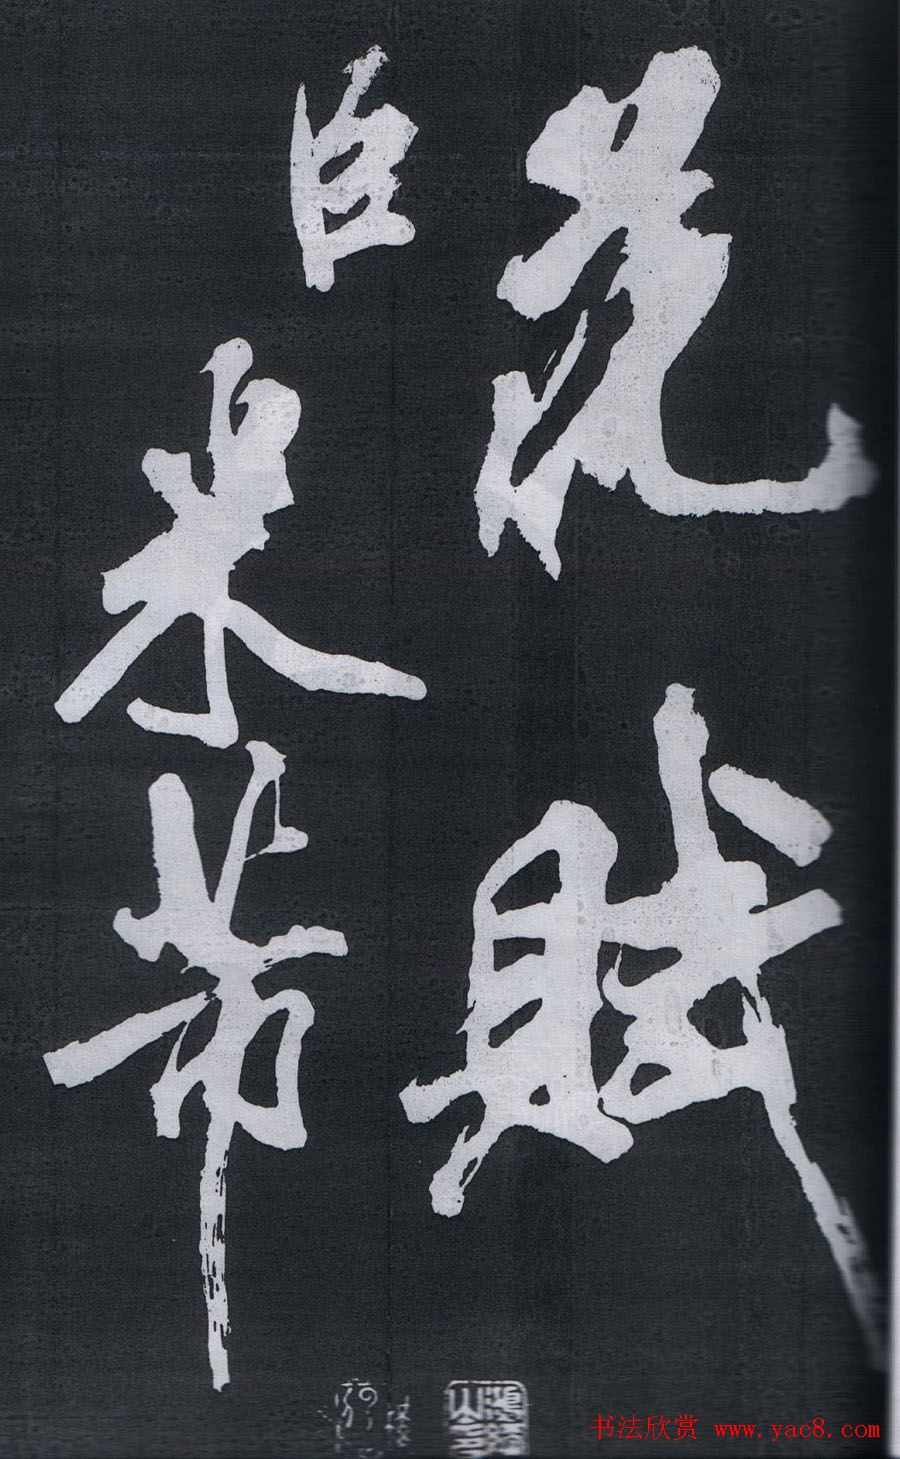 賦
臣
米芾
书法欣赏 www.yac8.com